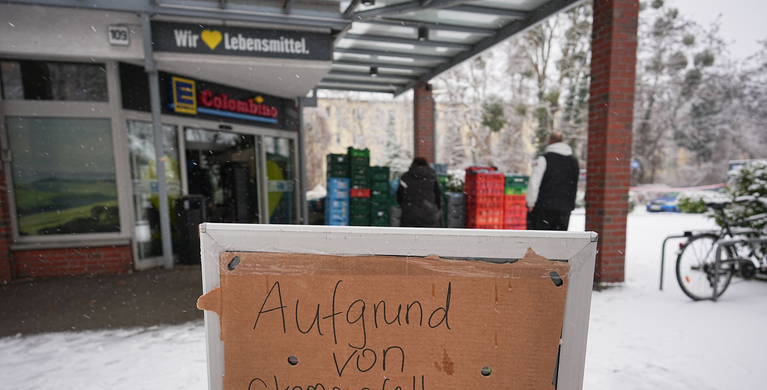 109
Wir Lebensmittel.
E
Colombino
Aufgrund
von